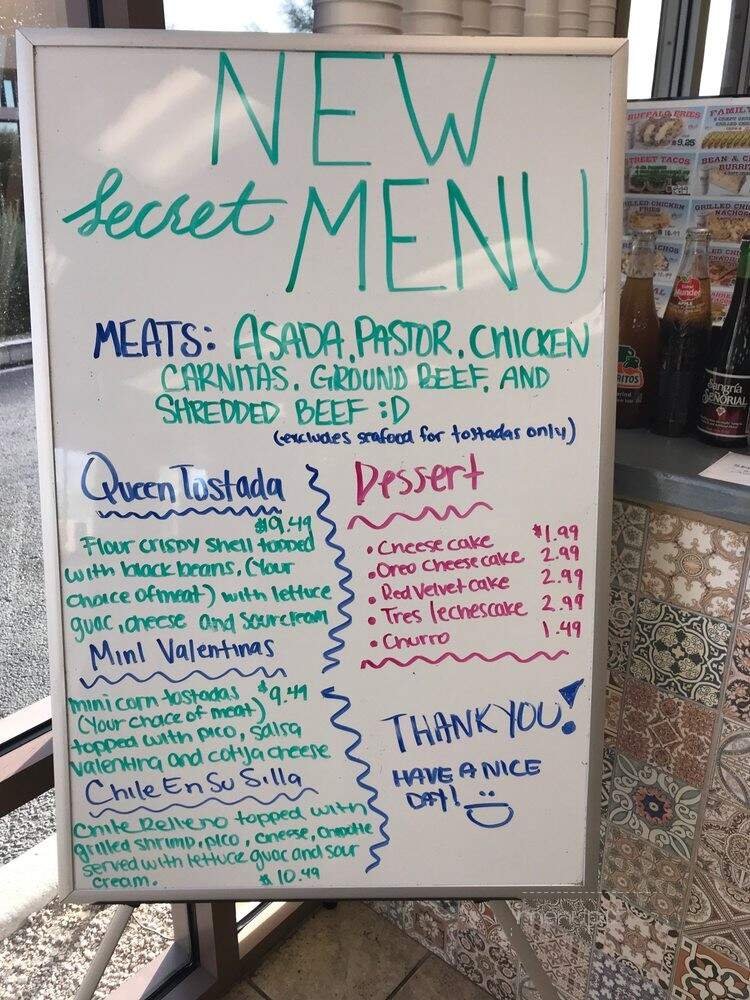 NEW
Secret MENU
MEATS: ASADA, PASTOR, CHICKEN
CARNITAS, GROUND BEEF, AND
SHREDDED BEEF :D
(excludes seafood for tostadas only)
Queen Tostada
Flour crispy shell topped
with black beans, (Your
choice of meat) with lettuce
guac, cheese and sour cream
Mini Valentinas
mini corn tostadas $9.49
(Your choice of meat)
topped with pico, salsa
valentina and cotija cheese
Chile En Su Silla
Chile Relleno topped with
grilled shrimp, pico, cheese, chipotle
served with lettuce guac and sour
cream.
$10.49
Dessert
• Cheese cake $1.99
• Oreo Cheese cake 2.99
• Red Velvet cake 2.99
• Tres leches cake 2.99
• Churro 1.49
THANK YOU!
HAVE A NICE
DAY!
BUFFALO FRIES
$9.25
FAMILY
STREET TACOS
BEAN & C
BURRIT
GRILLED CHICKEN
FRIES
GRILLED CHI
NACHO
Mundet
RITOS
Sangría
SEÑORIAL